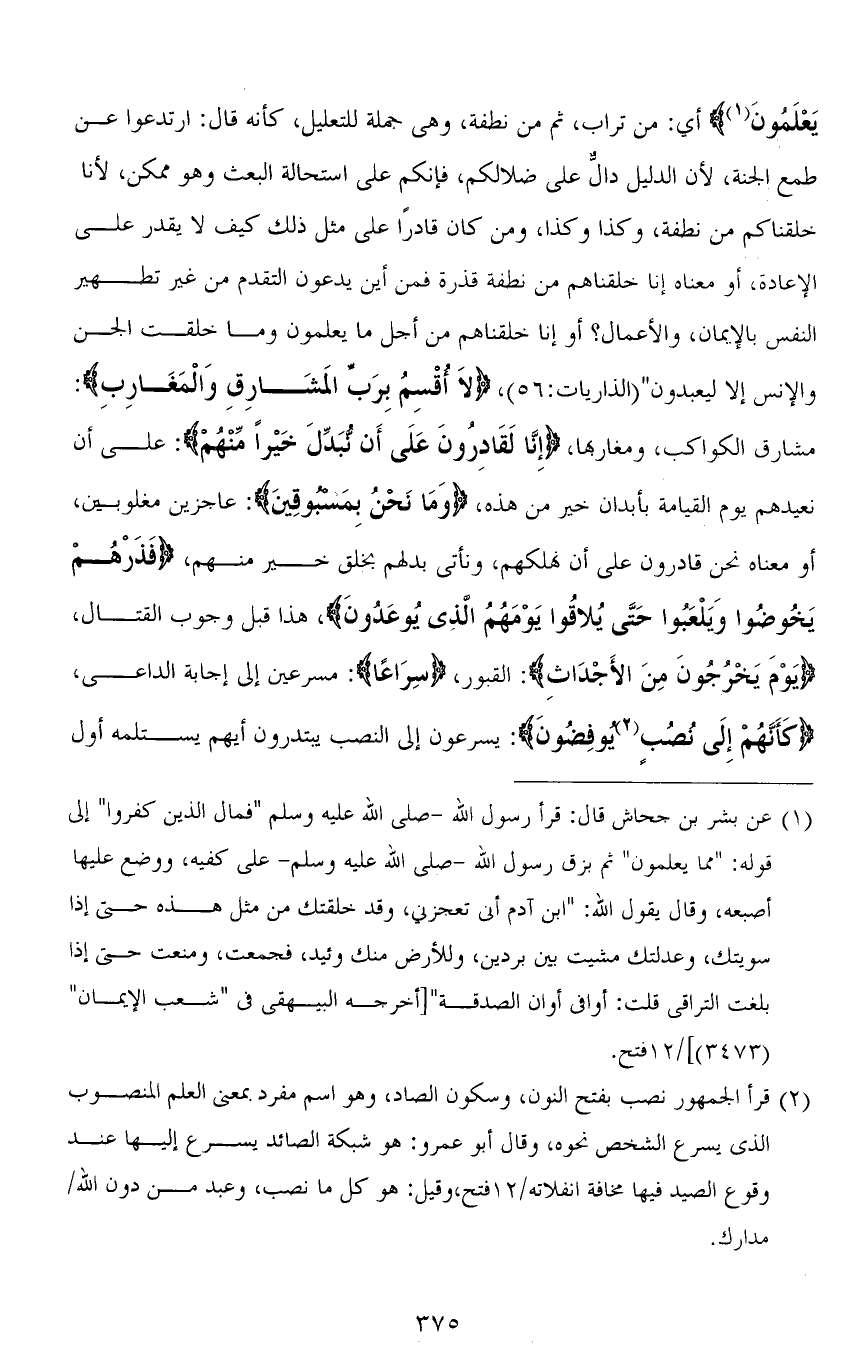 يَعْلَمُونَ(١)﴾ أي: من تراب، ثم من نطفة، وهى جملة للتعليل، كأنه قال: ارتدعوا عن
طمع الجنة، لأن الدليل دالٌّ على ضلالكم، فإنكم على استحالة البعث وهو ممكن، لأنا
خلقناكم من نطفة، وكذا وكذا، ومن كان قادرًا على مثل ذلك كيف لا يقدر على
الإعادة، أو معناه إنا خلقناهم من نطفة قذرة فمن أين يدعون التقدم من غير تطهير
النفس بالإيمان، والأعمال؟ أو إنا خلقناهم من أجل ما يعلمون وما خلقت الجن
والإنس إلا ليعبدون"(الذاريات:٥٦)، ﴿لاَ أُقْسِمُ بِرَبِّ المَشَارِقِ وَالْمَغَارِبِ﴾:
مشارق الكواكب، ومغاربها، ﴿إِنَّا لَقَادِرُونَ عَلَى أَن نُّبَدِّلَ خَيْراً مِّنْهُمْ﴾: على أن
نعيدهم يوم القيامة بأبدان خير من هذه، ﴿وَمَا نَحْنُ بِمَسْبُوقِينَ﴾: عاجزين مغلوبين،
أو معناه نحن قادرون على أن نهلكهم، ونأتى بدلهم بخلق خير منهم، ﴿فَذَرْهُمْ
يَخُوضُوا وَيَلْعَبُوا حَتَّى يُلاقُوا يَوْمَهُمُ الَّذِى يُوعَدُونَ﴾، هذا قبل وجوب القتال،
﴿يَوْمَ يَخْرُجُونَ مِنَ الأَجْدَاثِ﴾: القبور، ﴿سِرَاعًا﴾: مسرعين إلى إجابة الداعى،
﴿كَأَنَّهُمْ إِلَى نُصُبٍ(٢)يُوفِضُونَ﴾: يسرعون إلى النصب يبتدرون أيهم يستلمه أول
(١) عن بشر بن جحاش قال: قرأ رسول الله -صلى الله عليه وسلم "فمال الذين كفروا" إلى
قوله: "مما يعلمون" ثم بزق رسول الله -صلى الله عليه وسلم- على كفيه، ووضع عليها
أصبعه، وقال يقول الله: "ابن آدم أنى تعجزني، وقد خلقتك من مثل هذه حتى إذا
سويتك، وعدلتك مشيت بين بردين، وللأرض منك وئيد، فجمعت، ومنعت حتى إذا
بلغت التراقى قلت: أوافى أوان الصدقة"[أخرجه البيهقى فى "شعب الإيمان"
(٣٤٧٣)]/١٢فتح.
(٢) قرأ الجمهور نصب بفتح النون، وسكون الصاد، وهو اسم مفرد بمعنى العلم المنصوب
الذى يسرع الشخص نحوه، وقال أبو عمرو: هو شبكة الصائد يسرع إليها عند
وقوع الصيد فيها مخافة انفلاته/١٢فتح،وقيل: هو كل ما نصب، وعبد من دون الله/
مدارك.
٣٧٥